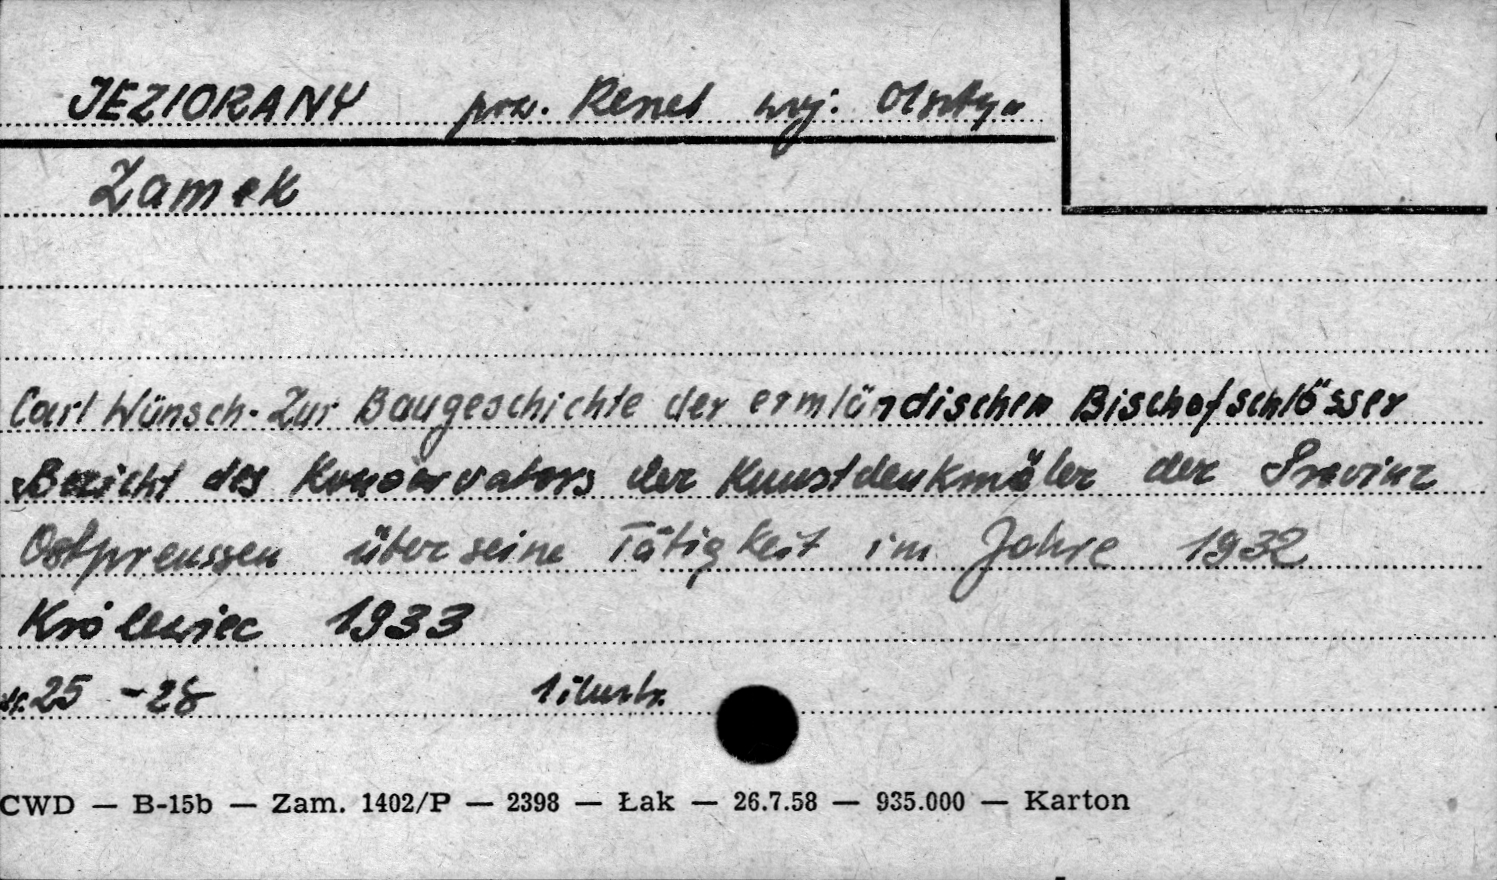 JEZIORANY pow. Reszel woj: Olsztyn
Zamek
Carl Wünsch - Zur Baugeschichte der ermländischen Bischofschlösser
Bericht des Konservators der Kunstdenkmäler der Provinz
Ostpreussen über seine Tätigkeit im Jahre 1932
Królewiec 1933
st. 25 - 28 1 ilustr.
CWD — B-15b — Zam. 1402/P — 2398 — Łak — 26.7.58 — 935.000 — Karton